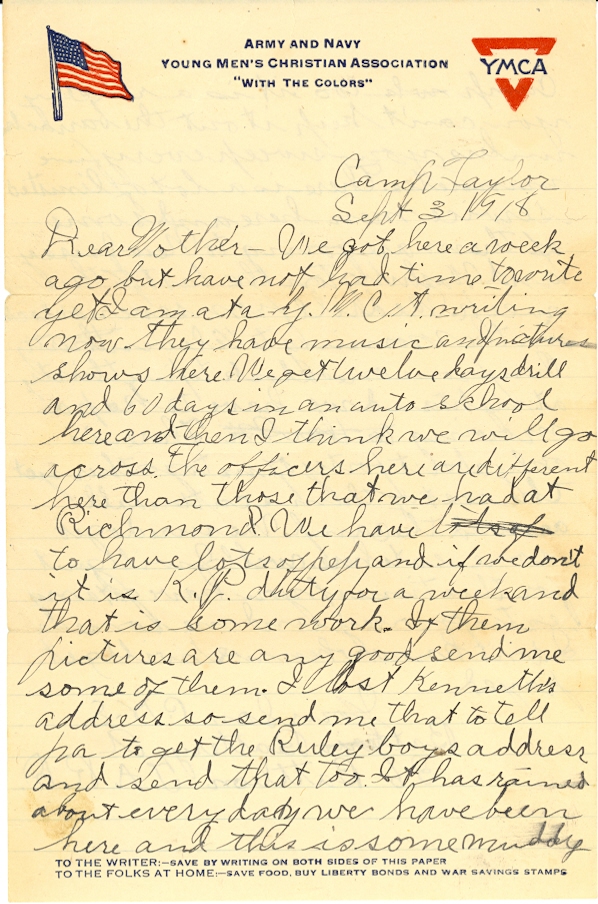 ARMY AND NAVY
YOUNG MEN'S CHRISTIAN ASSOCIATION
"WITH THE COLORS"
YMCA
Camp Taylor
Sept 3 1918
Dear Mother - We got here a week
ago but have not had time to write
yet I am at a Y. M. C. A. writing
now they have music and pictures
shows here. We get twelve days drill
and 60 days in an auto school
here and then I think we will go
across. The officers here are different
here than those that we had at
Richmond. We have lots of
to have lots of pep and if we don't
it is K. P. duty for a week and
that is some work. If them
pictures are any good send me
some of them. I lost Kenneth's
address so send me that to tell
pa to get the Ruley boys address
and send that too. It has rained
about every day we have been
here and this is some muddy
TO THE WRITER:—SAVE BY WRITING ON BOTH SIDES OF THIS PAPER
TO THE FOLKS AT HOME:—SAVE FOOD, BUY LIBERTY BONDS AND WAR SAVINGS STAMPS